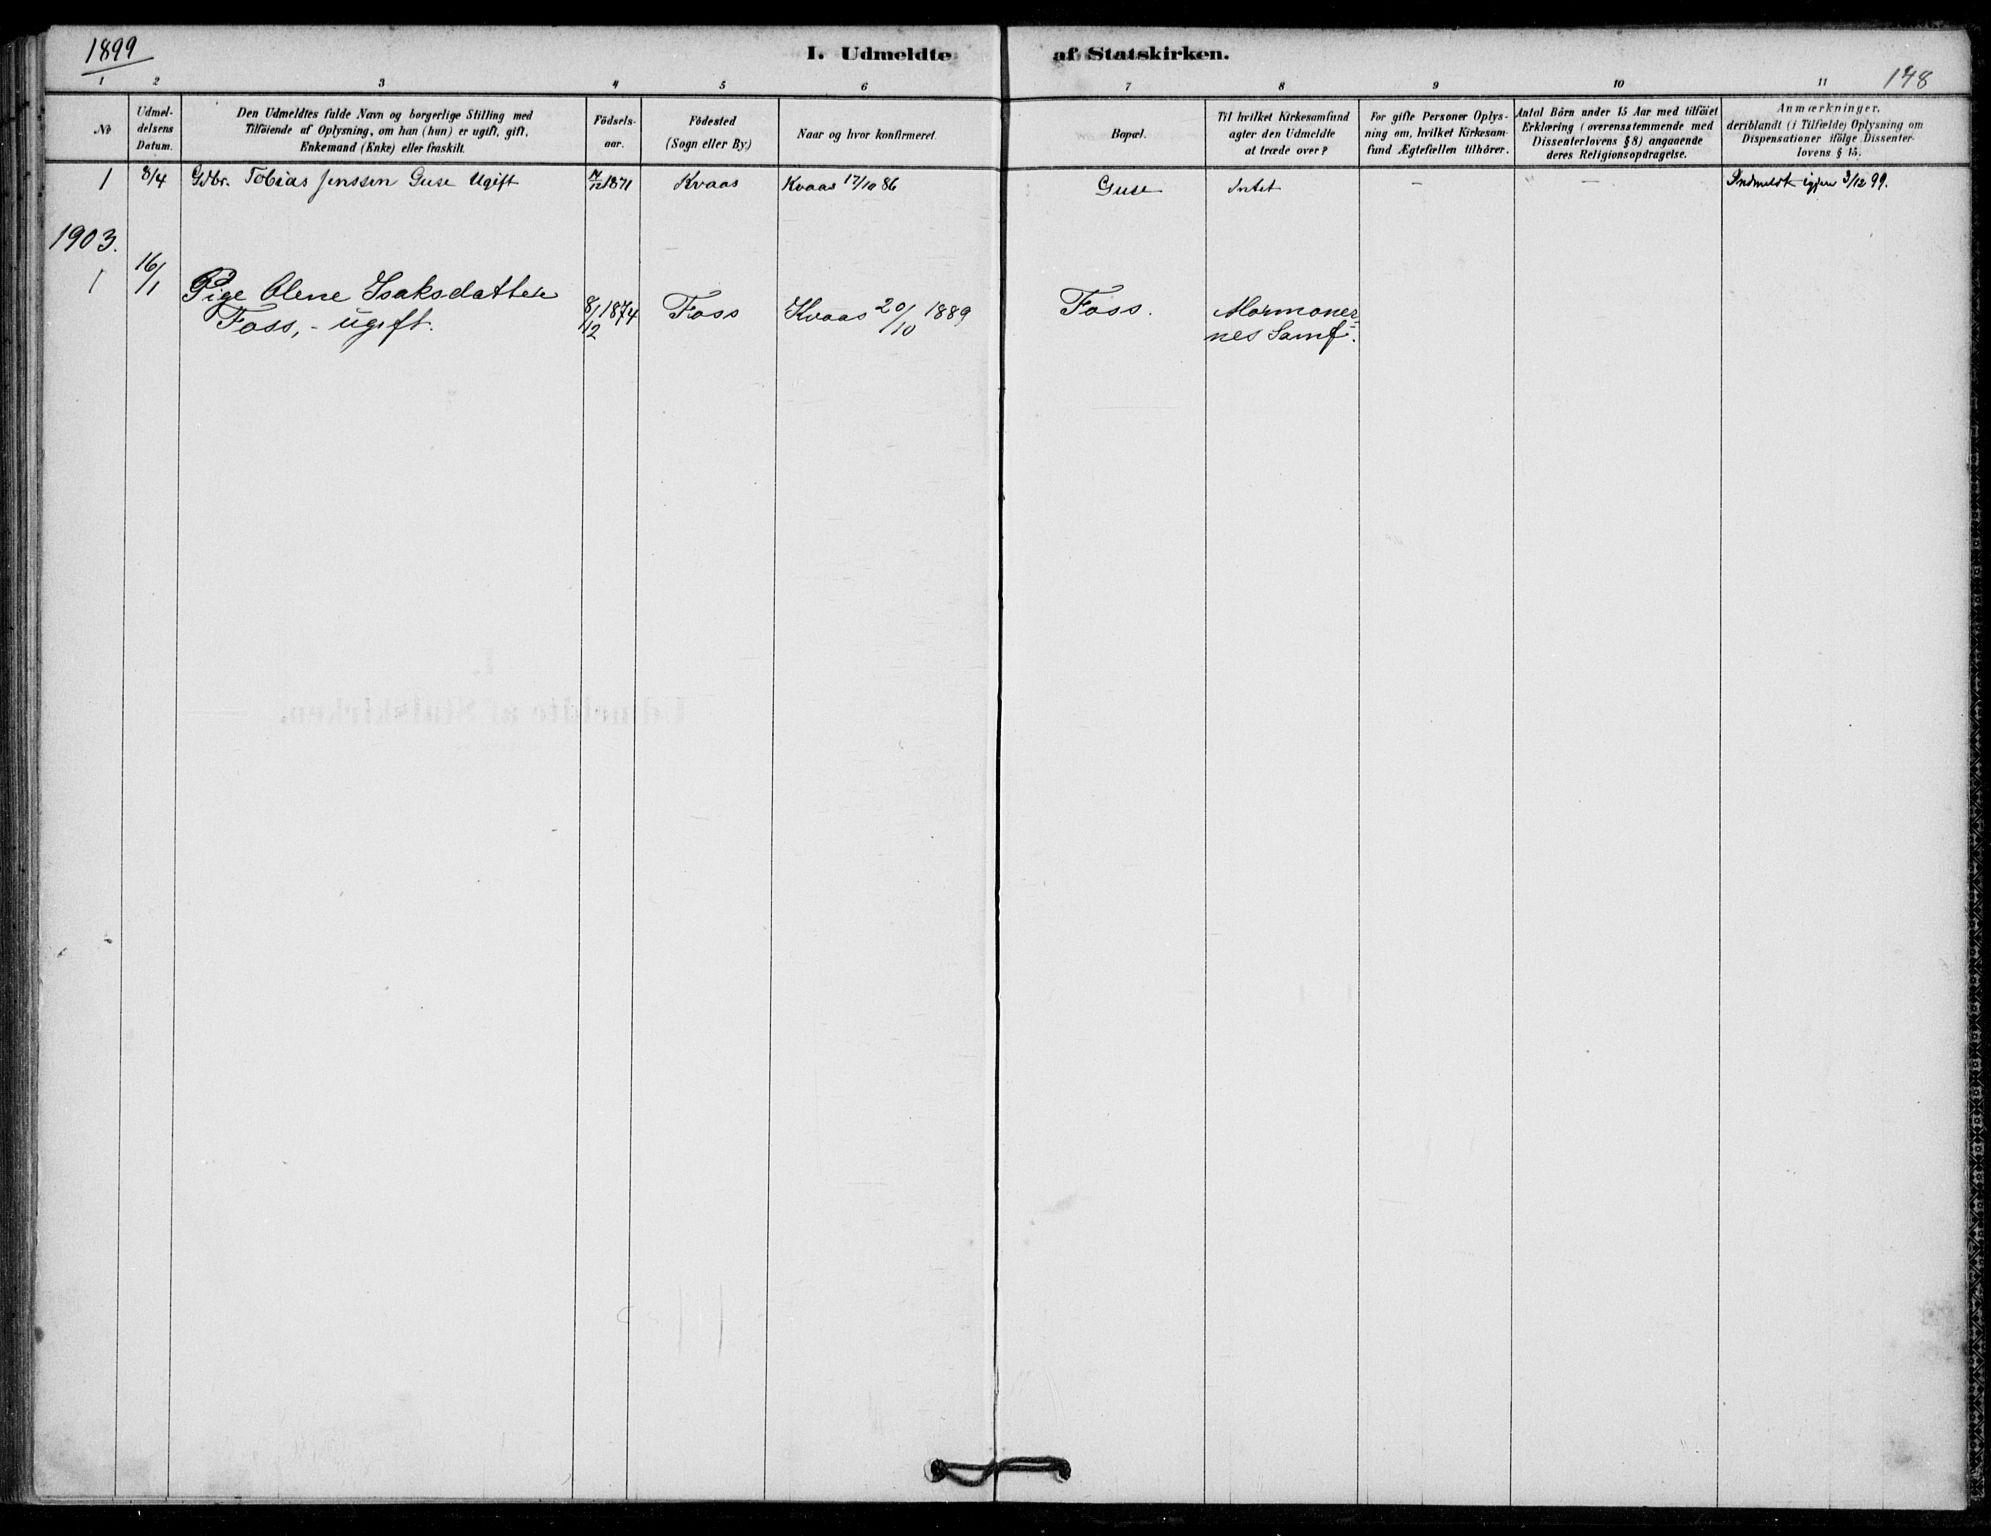 1899
I. Udmeldte af Statskirken.
148
1 2 3 4 5 6 7 8 9 10 11
No
Udmel-
delsens
Datum.
Den Udmeldtes fulde Navn og borgerlige Stilling med
Tilföiende af Oplysning, om han (hun) er ugift, gift,
Enkemand (Enke) eller fraskilt.
Födsels-
aar.
Födested
(Sogn eller By.)
Naar og hvor konfirmeret.
Bopæl.
Til hvilket Kirkesamfund
agter den Udmeldte
at træde over?
For gifte Personer Oplys-
ning om, hvilket Kirkesam-
fund Ægtefællen tilhörer.
Antal Börn under 15 Aar med tilföiet
Erklæring (overensstemmende med
Dissenterlovens § 8) angaaende
deres Religionsopdragelse.
Anmærkninger,
deriblandt (i Tilfælde) Oplysning om
Dispensationer ifölge Dissenter-
lovens § 15.
1 8/4 Gdbr. Tobias Jenssen Guse Ugift 1871 Kvaas Kvaas 17/10 86 Guse Intet — — Indmeldt igjen 3/12 99.
1903.
1 16/1 Pige Olene Isaksdatter
Foss, - ugift. 8/12 1874 Foss Kvaas 20/10 1889 Foss. Mormoner=
nes Samf.